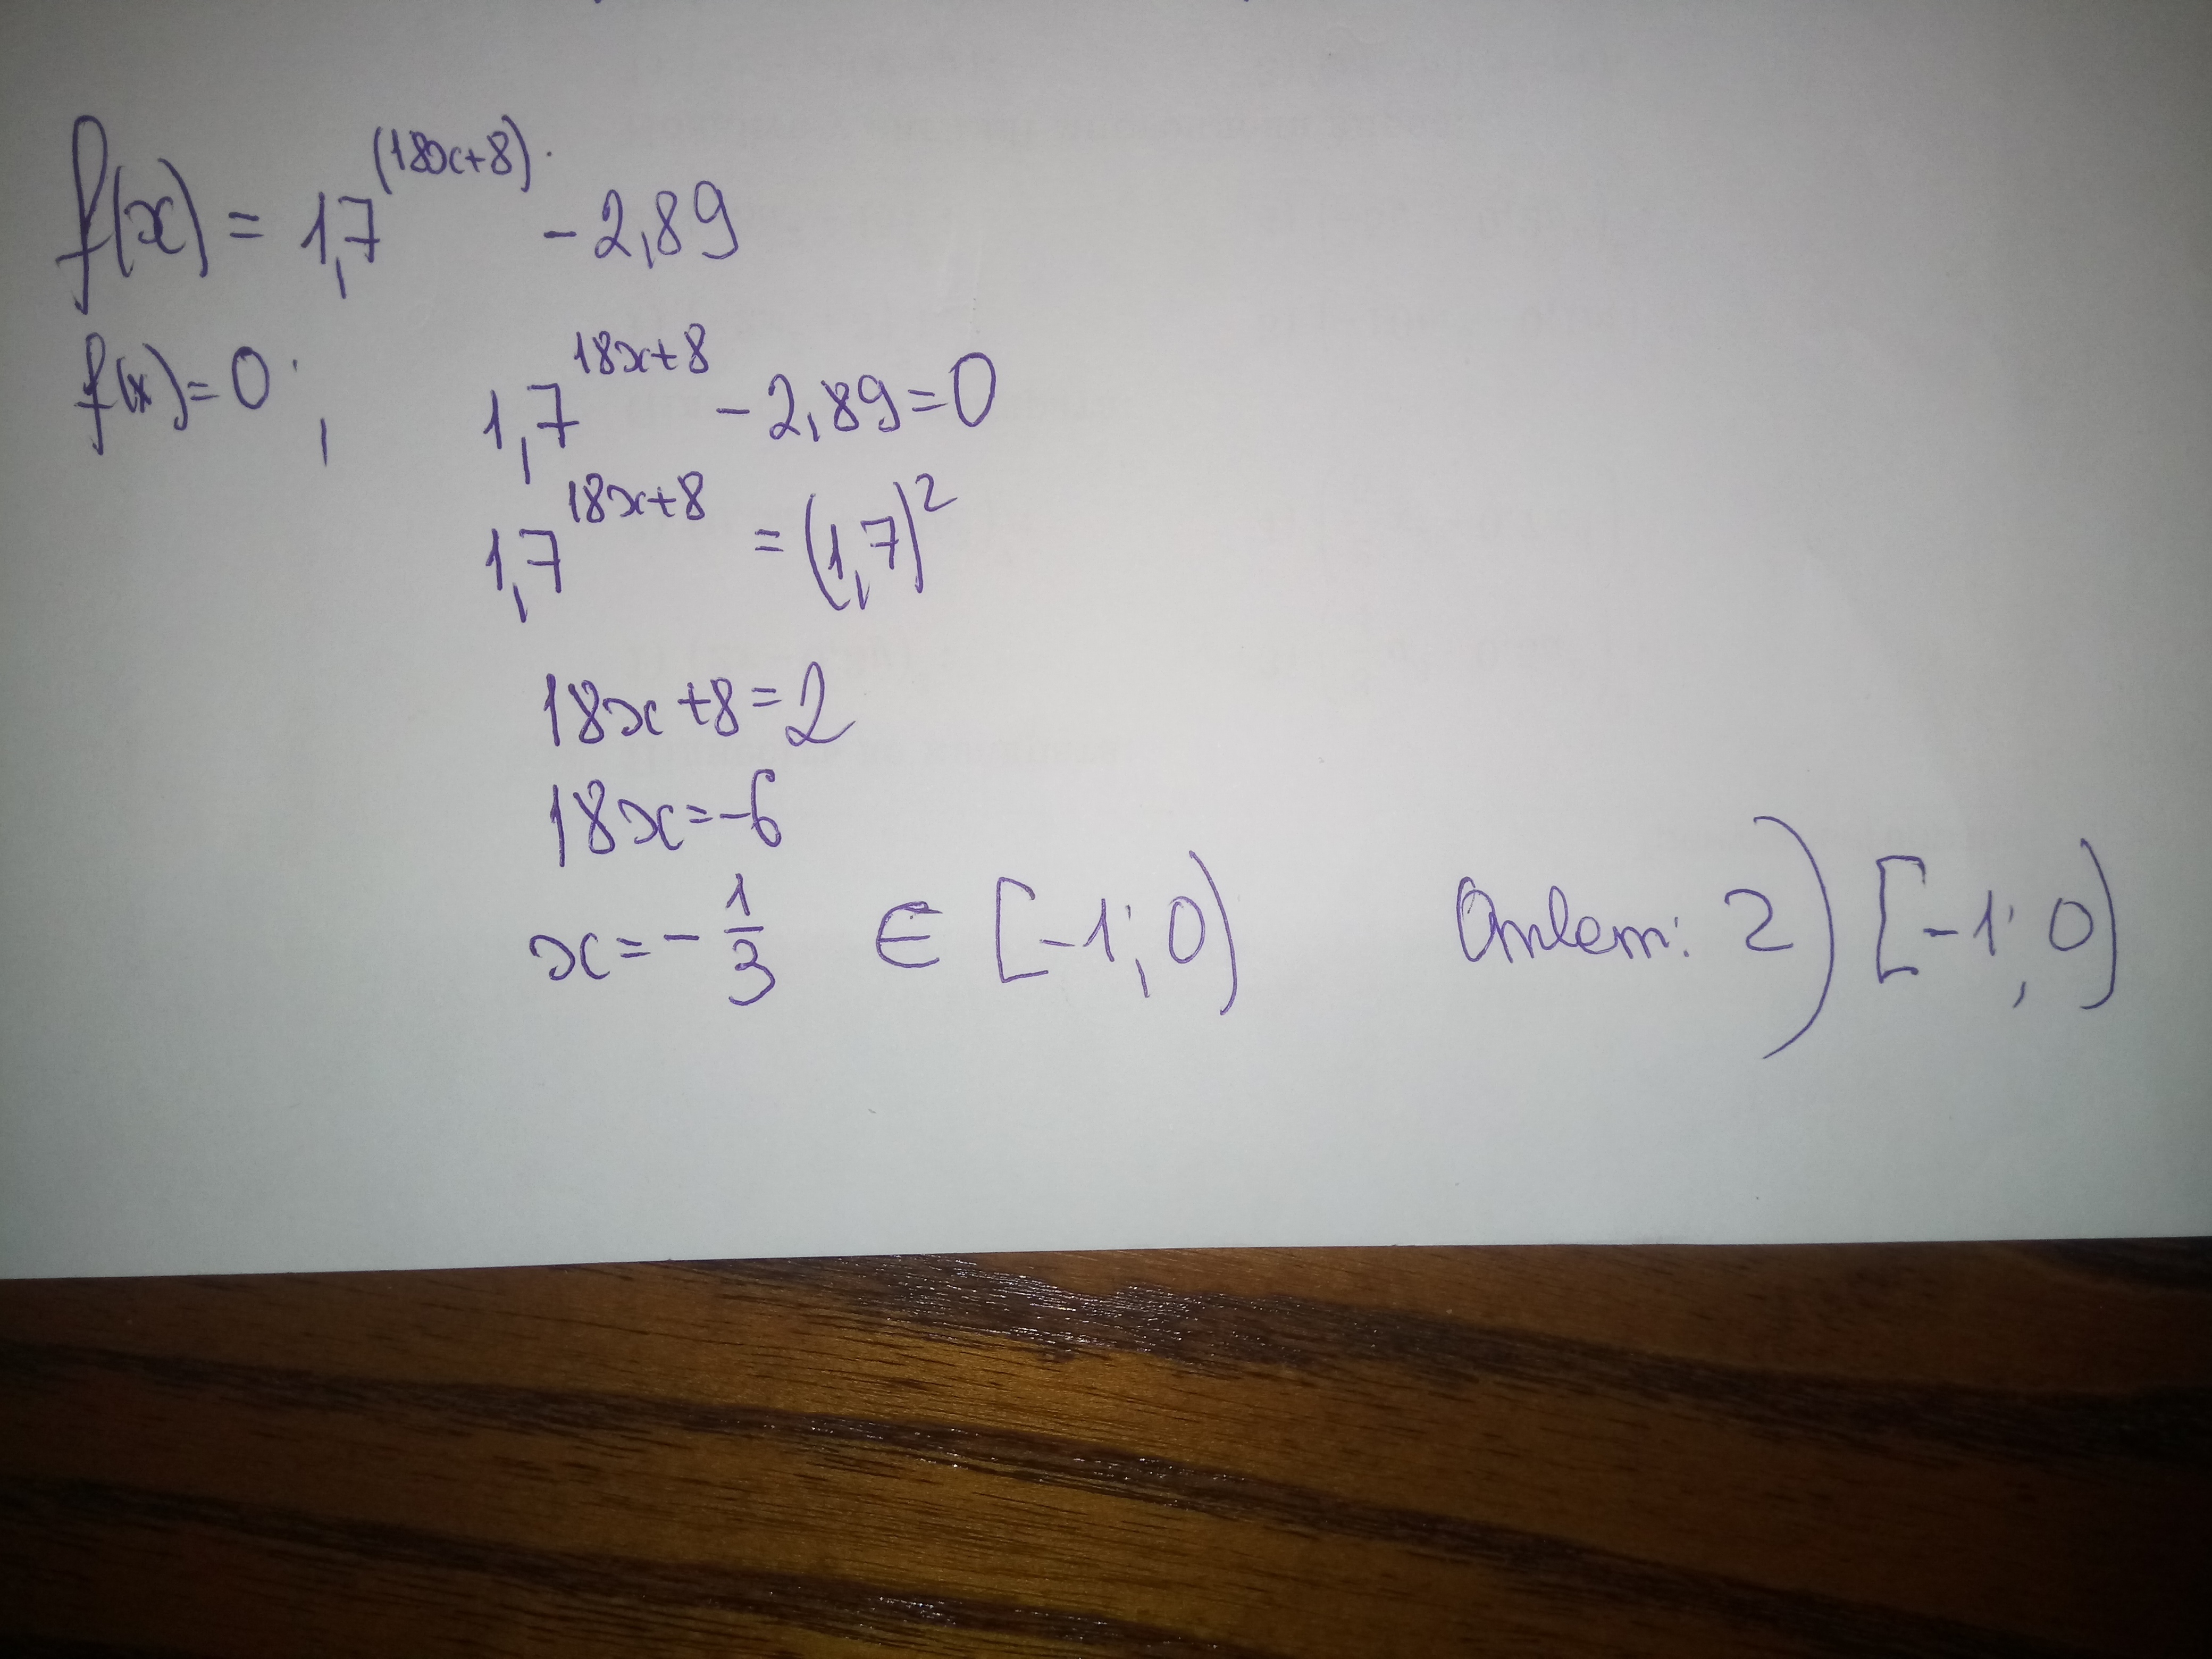 f(x) = 1,7^(18x+8) - 2,89
f(x)=0; 1,7^18x+8 - 2,89=0
1,7^18x+8 = (1,7)^2
18x+8=2
18x=-6
x=-1/3 ∈ [-1;0) Ответ: 2) [-1;0)